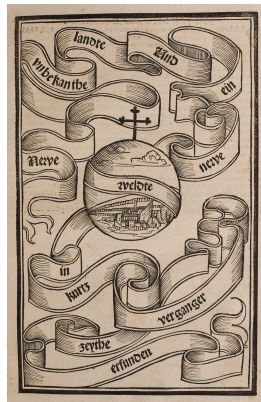 Newe
vnbekanthe
landte
Und
ein
newe
weldte
in
kurz
verganger
zeythe
erfunden